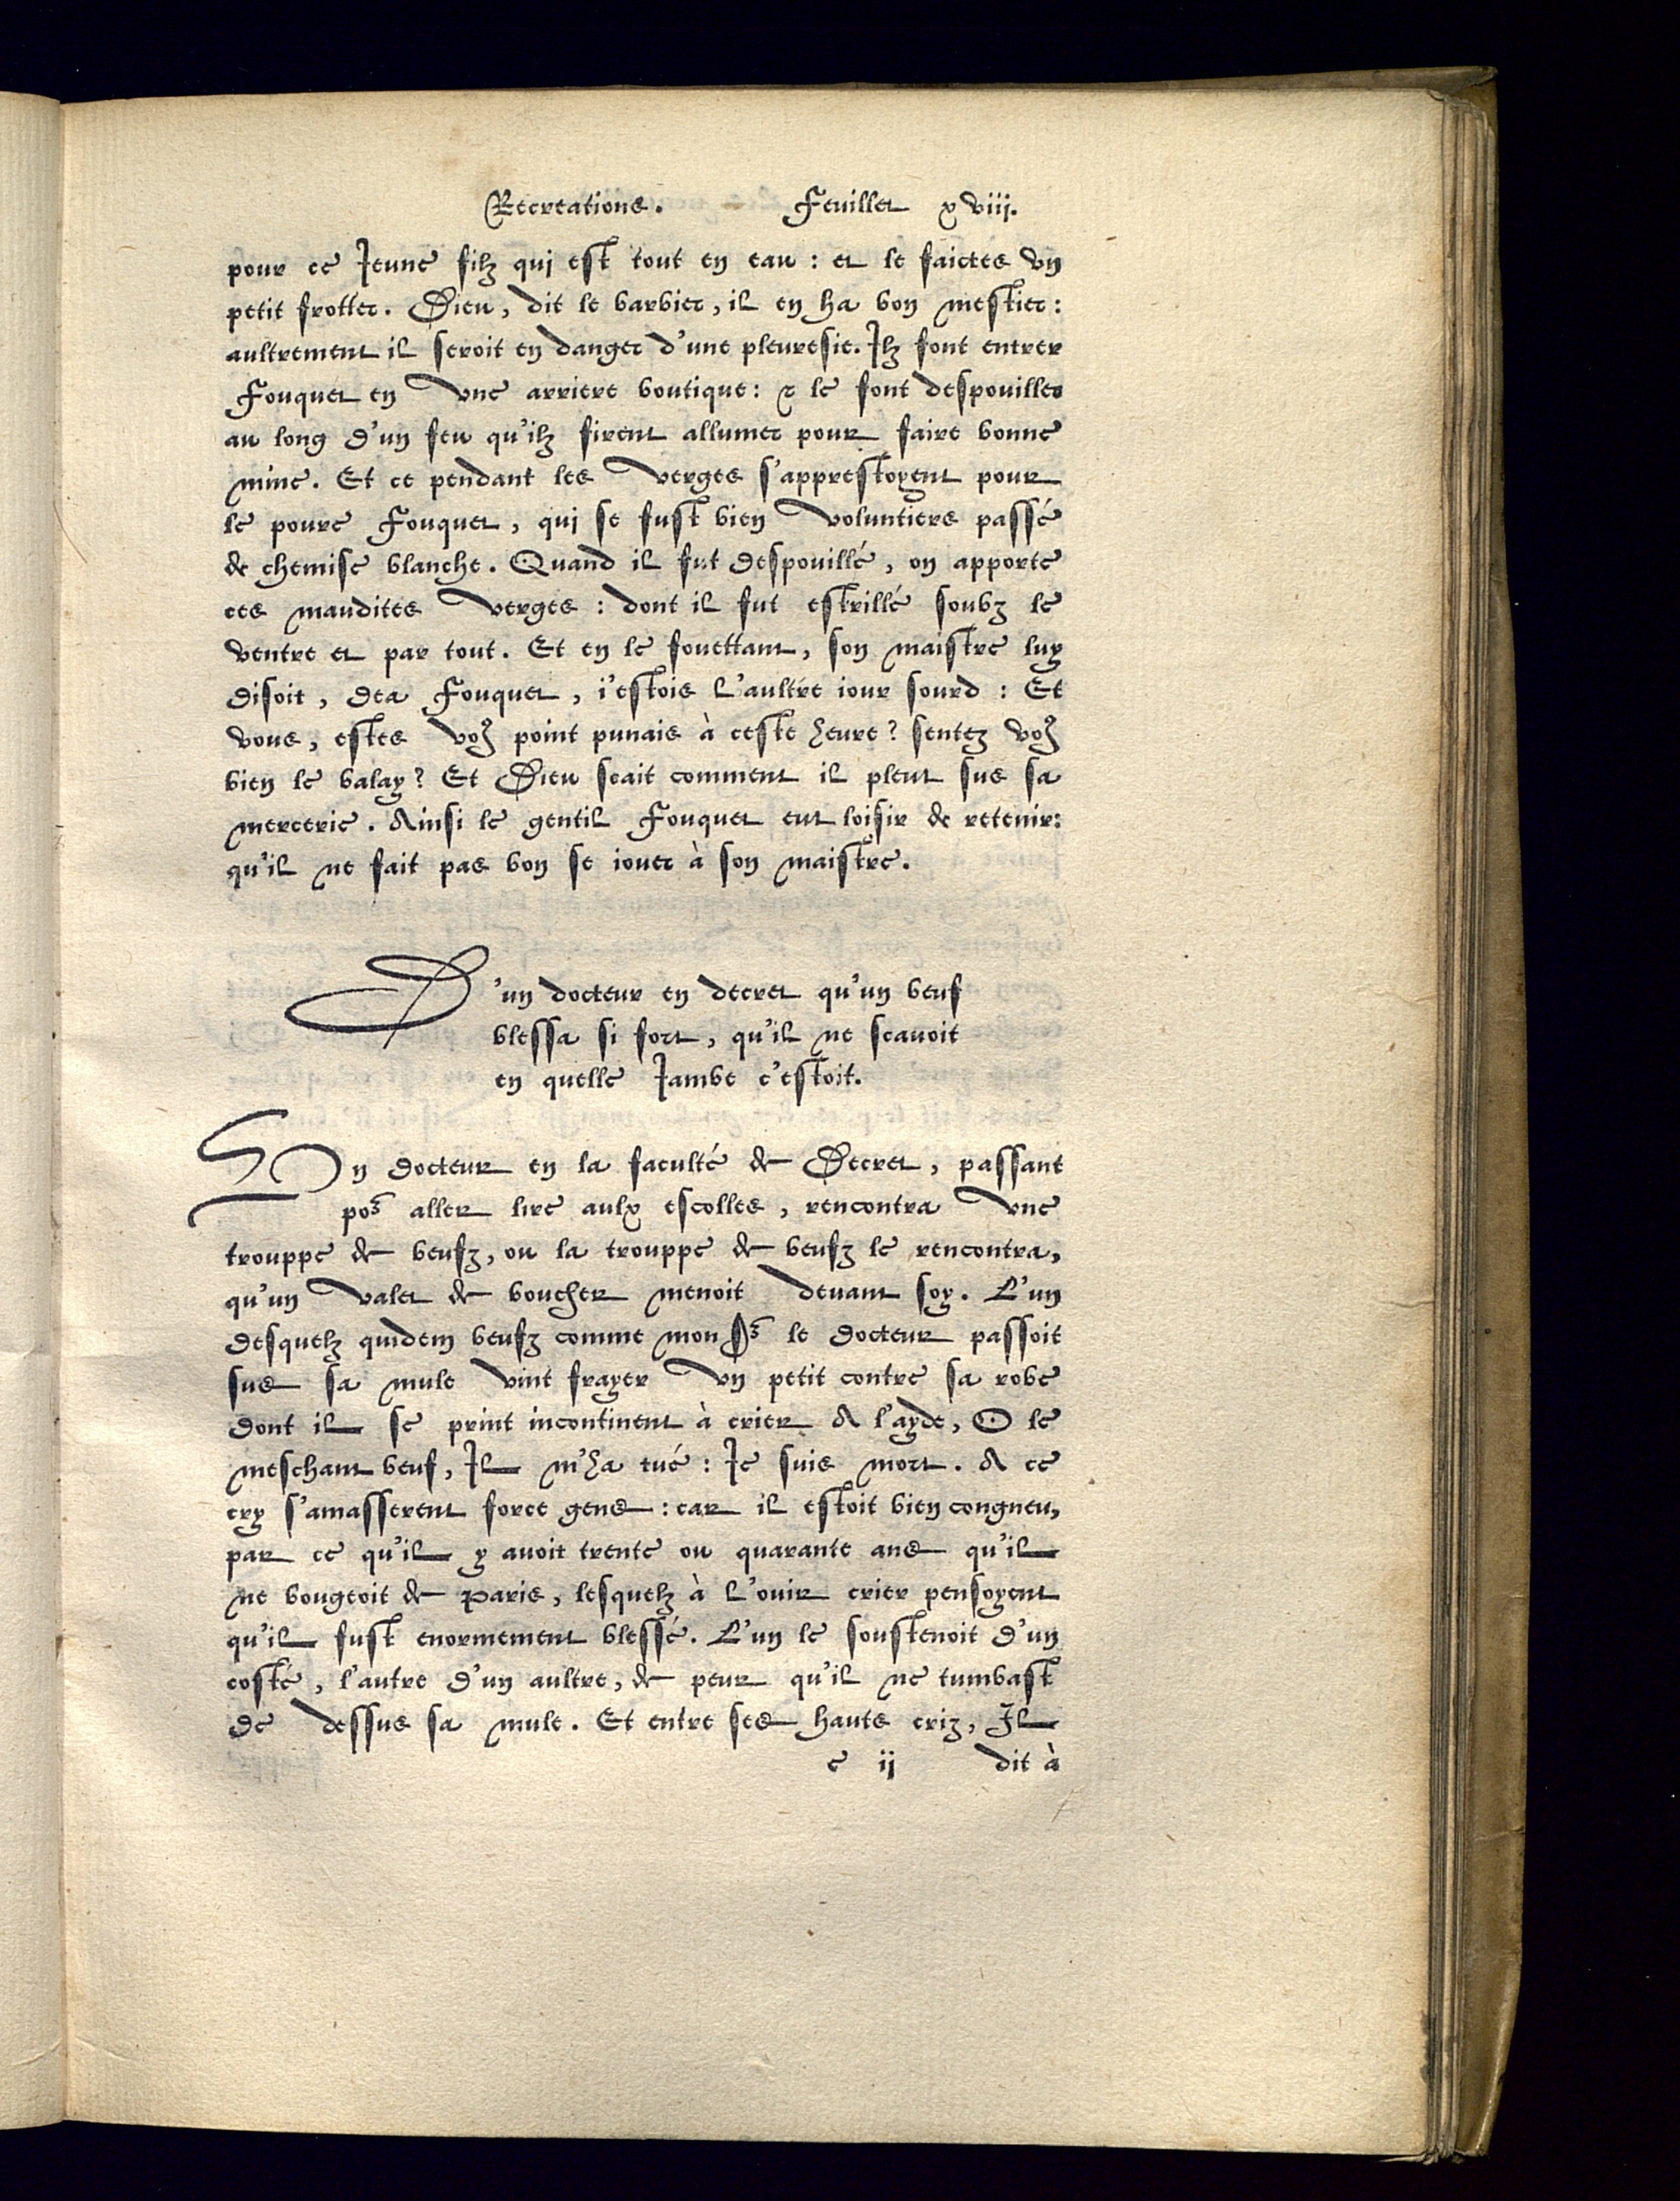 Recreations. Feuillet xviij.
pour ce Jeune filz qui est tout en eau : et le faictes vn
petit frotter. Dieu, dit le barbier, il en ha bon mestier :
aultrement il seroit en danger d'une pleuresie. Ilz font entrer
Fouquet en vne arriere boutique : & le font despouiller
au long d'un feu qu'ilz firent allumer pour faire bonne
mine. Et ce pendant les verges s'apprestoyent pour
le poure Fouquet, qui se fust bien voluntiers passé
de chemise blanche. Quand il fut despouillé, on apporte
ces maudites verges : dont il fut estrillé soubz le
ventre et par tout. Et en le fouettant, son maistre luy
disoit, dea Fouquet, i'estois l'aultre iour sourd : Et
vous, estes voꝰ point punais à ceste heure ? sentez voꝰ
bien le balay ? Et Dieu scait comment il pleut sus sa
mercerie. Ainsi le gentil Fouquet eut loisir de retenir :
qu'il ne fait pas bon se iouer à son maistre.
D'un docteur en decret qu'un beuf
blessa si fort, qu'il ne scauoit
en quelle Jambe c'estoit.
Vn docteur en la faculté de Decret, passant
poʳ aller lire aulx escolles, rencontra vne
trouppe de beufz, ou la trouppe de beufz le rencontra,
qu'un valet de boucher menoit deuant soy. L'un
desquelz quidem beufz comme monSʳ le docteur passoit
sus sa mule vint frayer vn petit contre sa robe
dont il se print incontinent à crier A l'ayde, O le
meschant beuf, Il m'ha tué : Je suis mort. A ce
cry s'amasserent force gens : car il estoit bien congneu,
par ce qu'il y auoit trente ou quarante ans qu'il
ne bougeoit de Paris, lesquelz à l'ouir crier pensoyent
qu'il fust enormement blessé. L'un le soustenoit d'un
costé, l'autre d'un aultre, de peur qu'il ne tumbast
de dessus sa mule. Et entre ses hauts criz, Il
c ij dit à